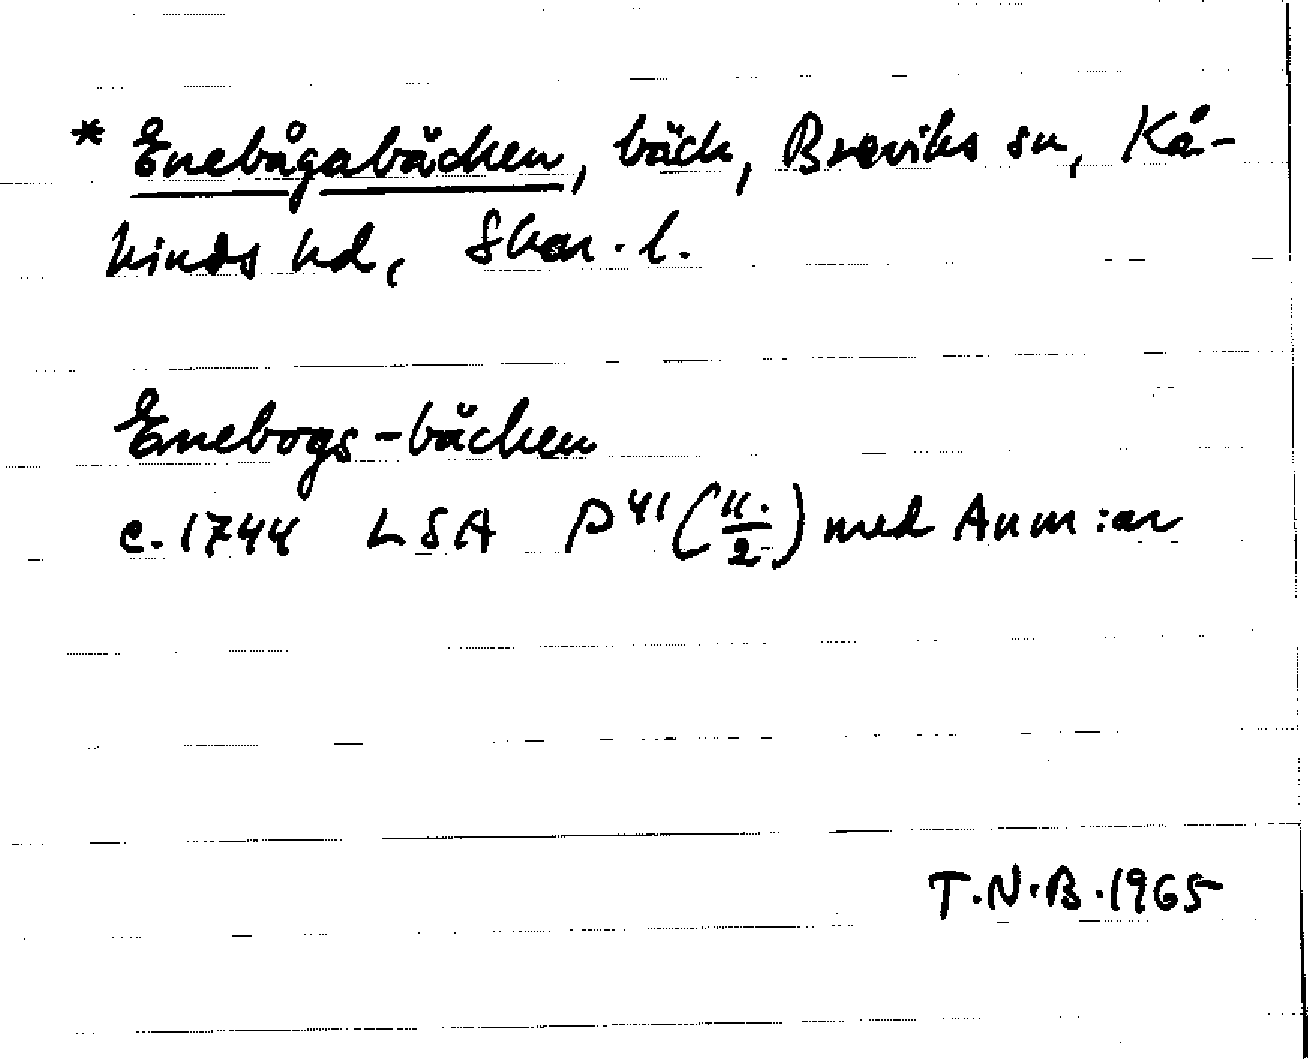 * Enebågabäcken, bäck, Breviks sn, Kå-
kinds hd, Skar. l.
Enebogs-bäcken
c. 1744 LSA P 41 (11./2) med Anm:ar
T.N.B. 1965